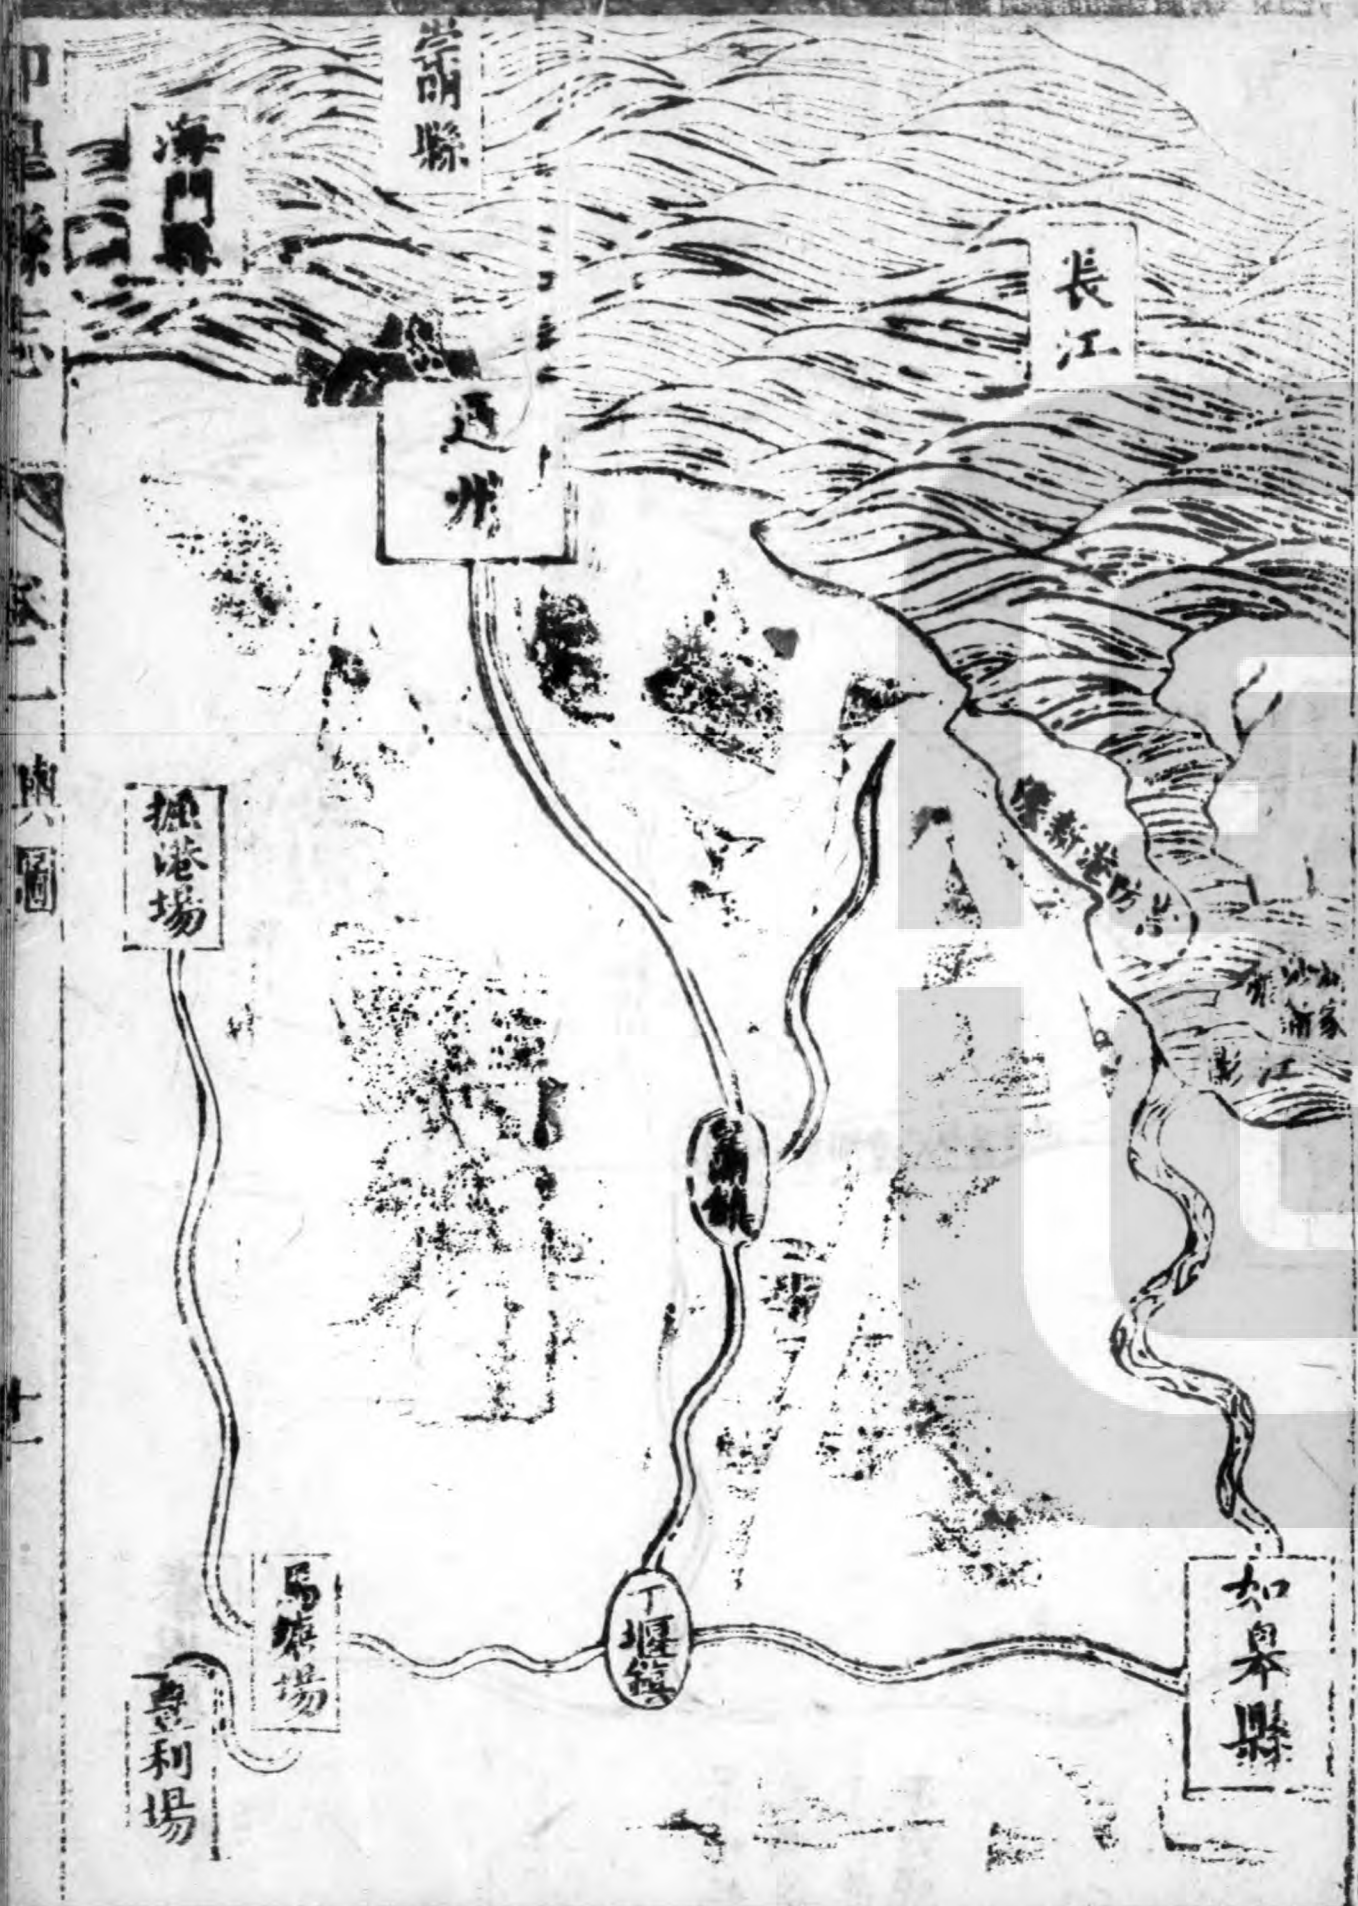 如皋縣志
卷一
輿圖
崇明縣
海門縣
長江
通州
掘港場
江
丁堰鎮
馬塘場
豊利場
如皋縣